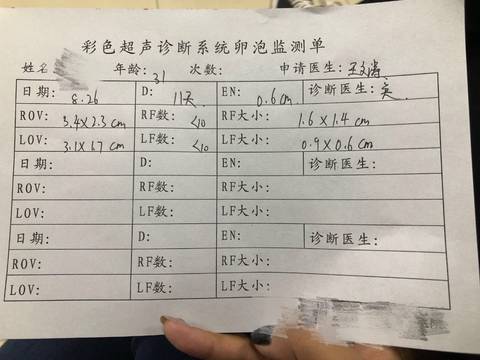 彩色超声诊断系统卵泡监测单
姓名 年龄: 31 次数: 申请医生:
日期: 8.26 D: 11天 EN: 0.6cm 诊断医生:
ROV: 3.4X2.3cm RF数: <10 RF大小: 1.6X1.4cm
LOV: 3.1X1.7cm LF数: <10 LF大小: 0.9X0.6cm
日期: D: EN: 诊断医生:
ROV: RF数: RF大小:
LOV: LF数: LF大小:
日期: D: EN: 诊断医生:
ROV: RF数: RF大小:
LOV: LF数: LF大小: